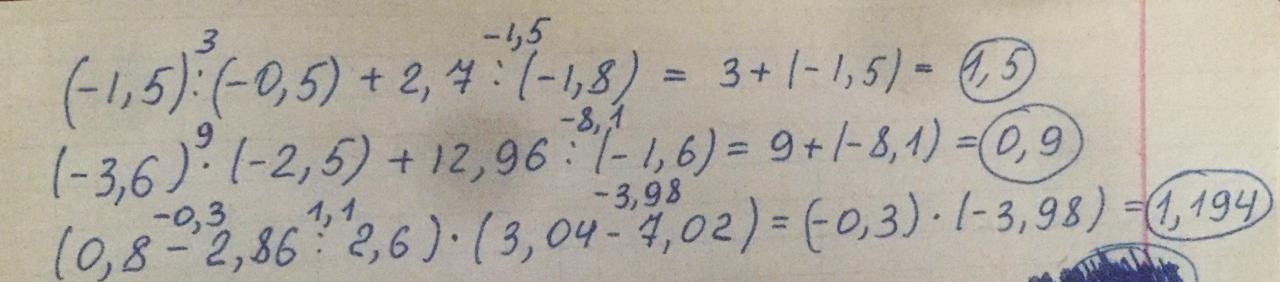 (-1,5) : (-0,5) + 2,7 : (-1,8) = 3 + (-1,5) = 1,5
3 -1,5
(-3,6) · (-2,5) + 12,96 : (-1,6) = 9 + (-8,1) = 0,9
9 -8,1
(0,8 - 2,86 : 2,6) · (3,04 - 7,02) = (-0,3) · (-3,98) = 1,194
-0,3 1,1 -3,98